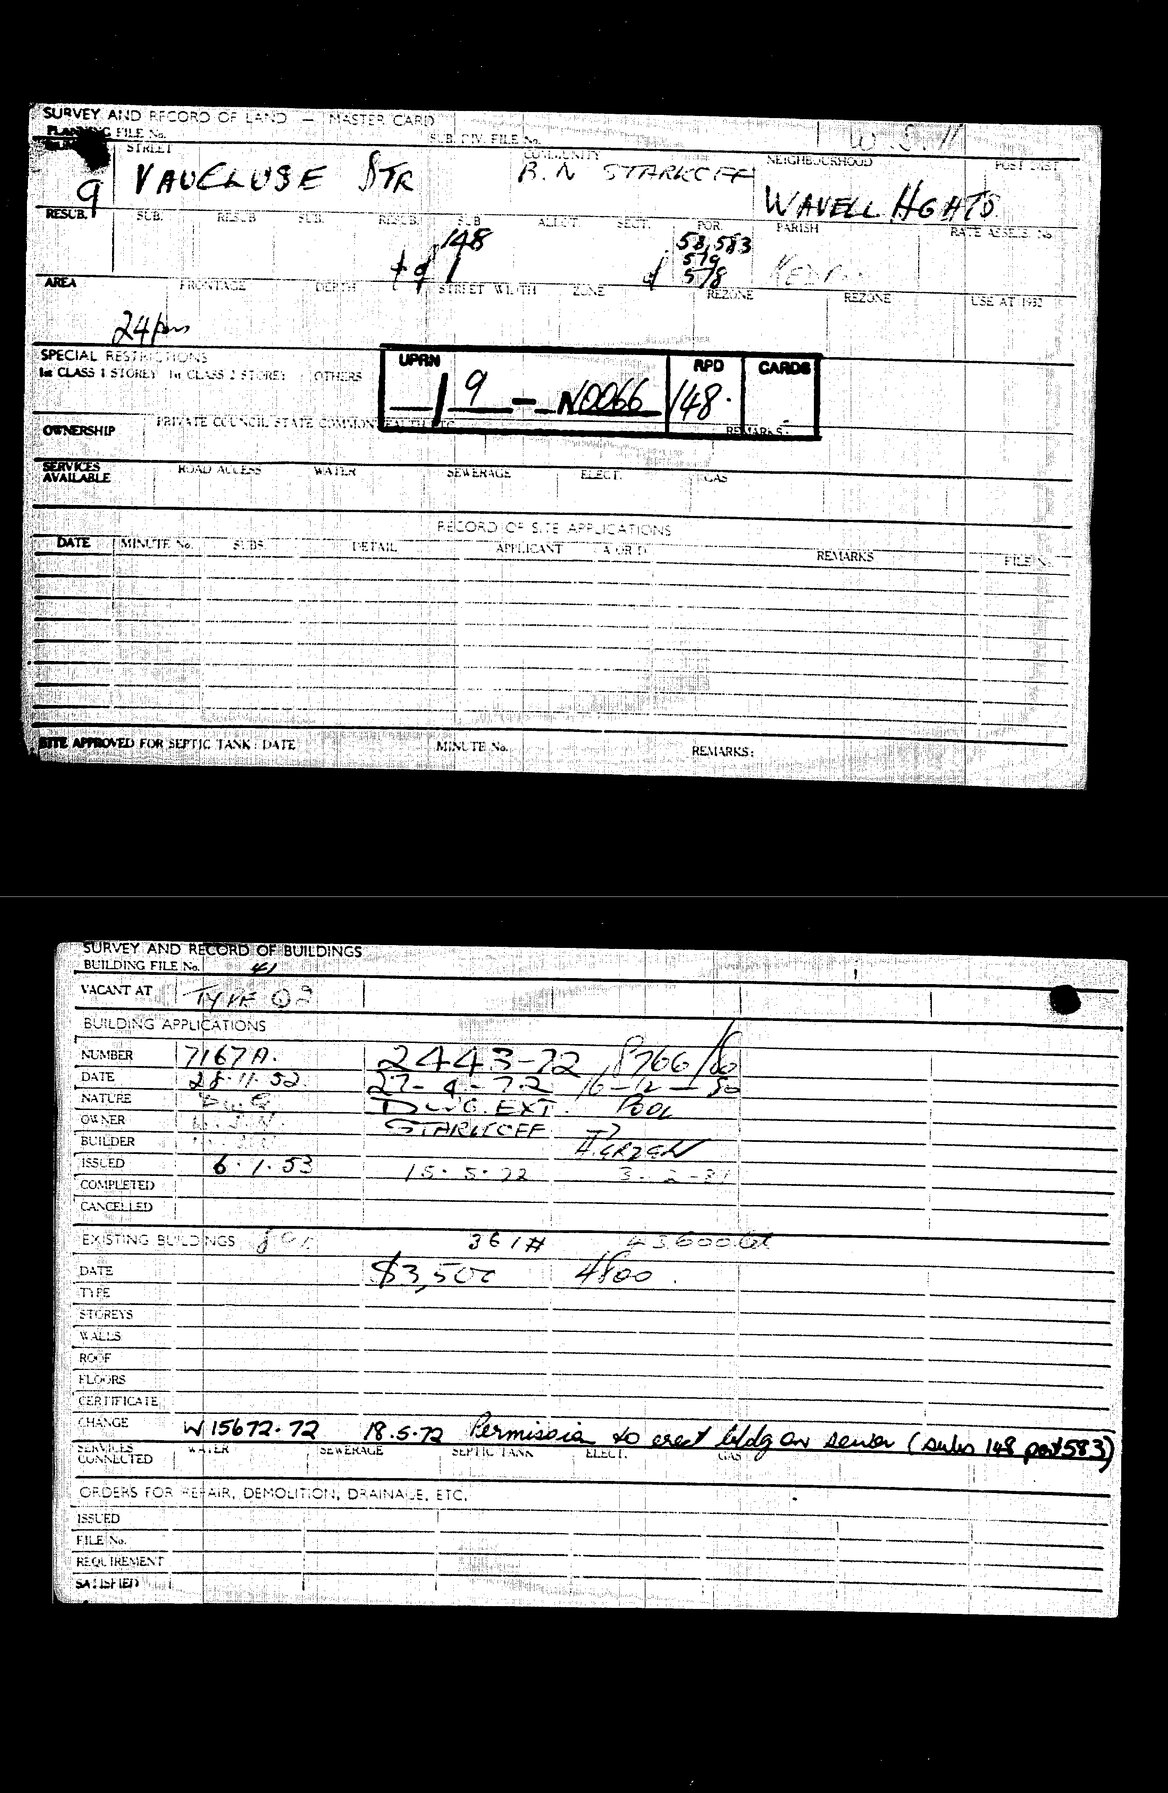 SURVEY AND RECORD OF LAND — MASTER CARD
PLANNING FILE No. SUB. DIV. FILE No. W.S.11
STREET COMMUNITY NEIGHBOURHOOD POST DIST
9 VAUCLUSE STR R.N STARKOFF WAVELL HGHTS.
RESUB. SUB. RESUB SUB. RESUB. SUB ALLOT. SECT. POR. PARISH RATE ASSESS. No
148 58, 583
519
of 1 of 578
AREA FRONTAGE DEPTH STREET WIDTH ZONE REZONE REZONE USE AT 1952
24
SPECIAL RESTRICTIONS
1st CLASS 1 STOREY 1st CLASS 2 STOREY OTHERS
UPRN RPD CARDS
/ 9 - N0066 148.
OWNERSHIP PRIVATE COUNCIL STATE COMMONWEALTH ETC REMARKS:
SERVICES AVAILABLE ROAD ACCESS WATER SEWERAGE ELECT. GAS
RECORD OF SITE APPLICATIONS
DATE MINUTE No. SUBS. DETAIL APPLICANT A OR D REMARKS FILE No.
SITE APPROVED FOR SEPTIC TANK: DATE MINUTE No. REMARKS:
SURVEY AND RECORD OF BUILDINGS
BUILDING FILE No. 41
VACANT AT TYPE
BUILDING APPLICATIONS
NUMBER 7167A. 2443-72 8766/80
DATE 28.11.52 27-4-72 16-12-80
NATURE DWG. EXT. POOL
OWNER STARKOFF
BUILDER
ISSUED 6.1.53 15.5.72 3-2-81
COMPLETED
CANCELLED
EXISTING BUILDINGS 361#
DATE $3,500 4800.
TYPE
STOREYS
WALLS
ROOF
FLOORS
CERTIFICATE
CHANGE W15672.72 18.5.72 Permission to erect bldg on sewer (subs 148 por 583)
SERVICES CONNECTED WATER SEWERAGE SEPTIC TANK ELECT. GAS
ORDERS FOR REPAIR, DEMOLITION, DRAINAGE, ETC.
ISSUED
FILE No.
REQUIREMENT
SATISFIED